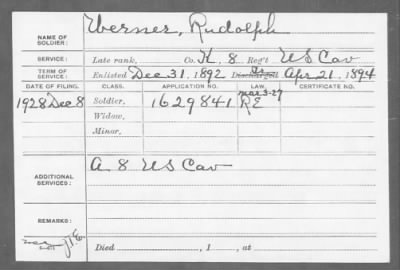 NAME OF SOLDIER: Werner, Rudolph
SERVICE: Late rank, Co. K, 8 Reg't US Cav
TERM OF SERVICE: Enlisted Dec 31, 1892 Discharged Apr 21, 1894
DATE OF FILING. CLASS. APPLICATION NO. LAW. CERTIFICATE NO.
mar 3-27
1928 Dec 8 Soldier, 1629841 RE
Widow,
Minor,
ADDITIONAL SERVICES: A 8 US Cav
REMARKS:
Died , 1 , at